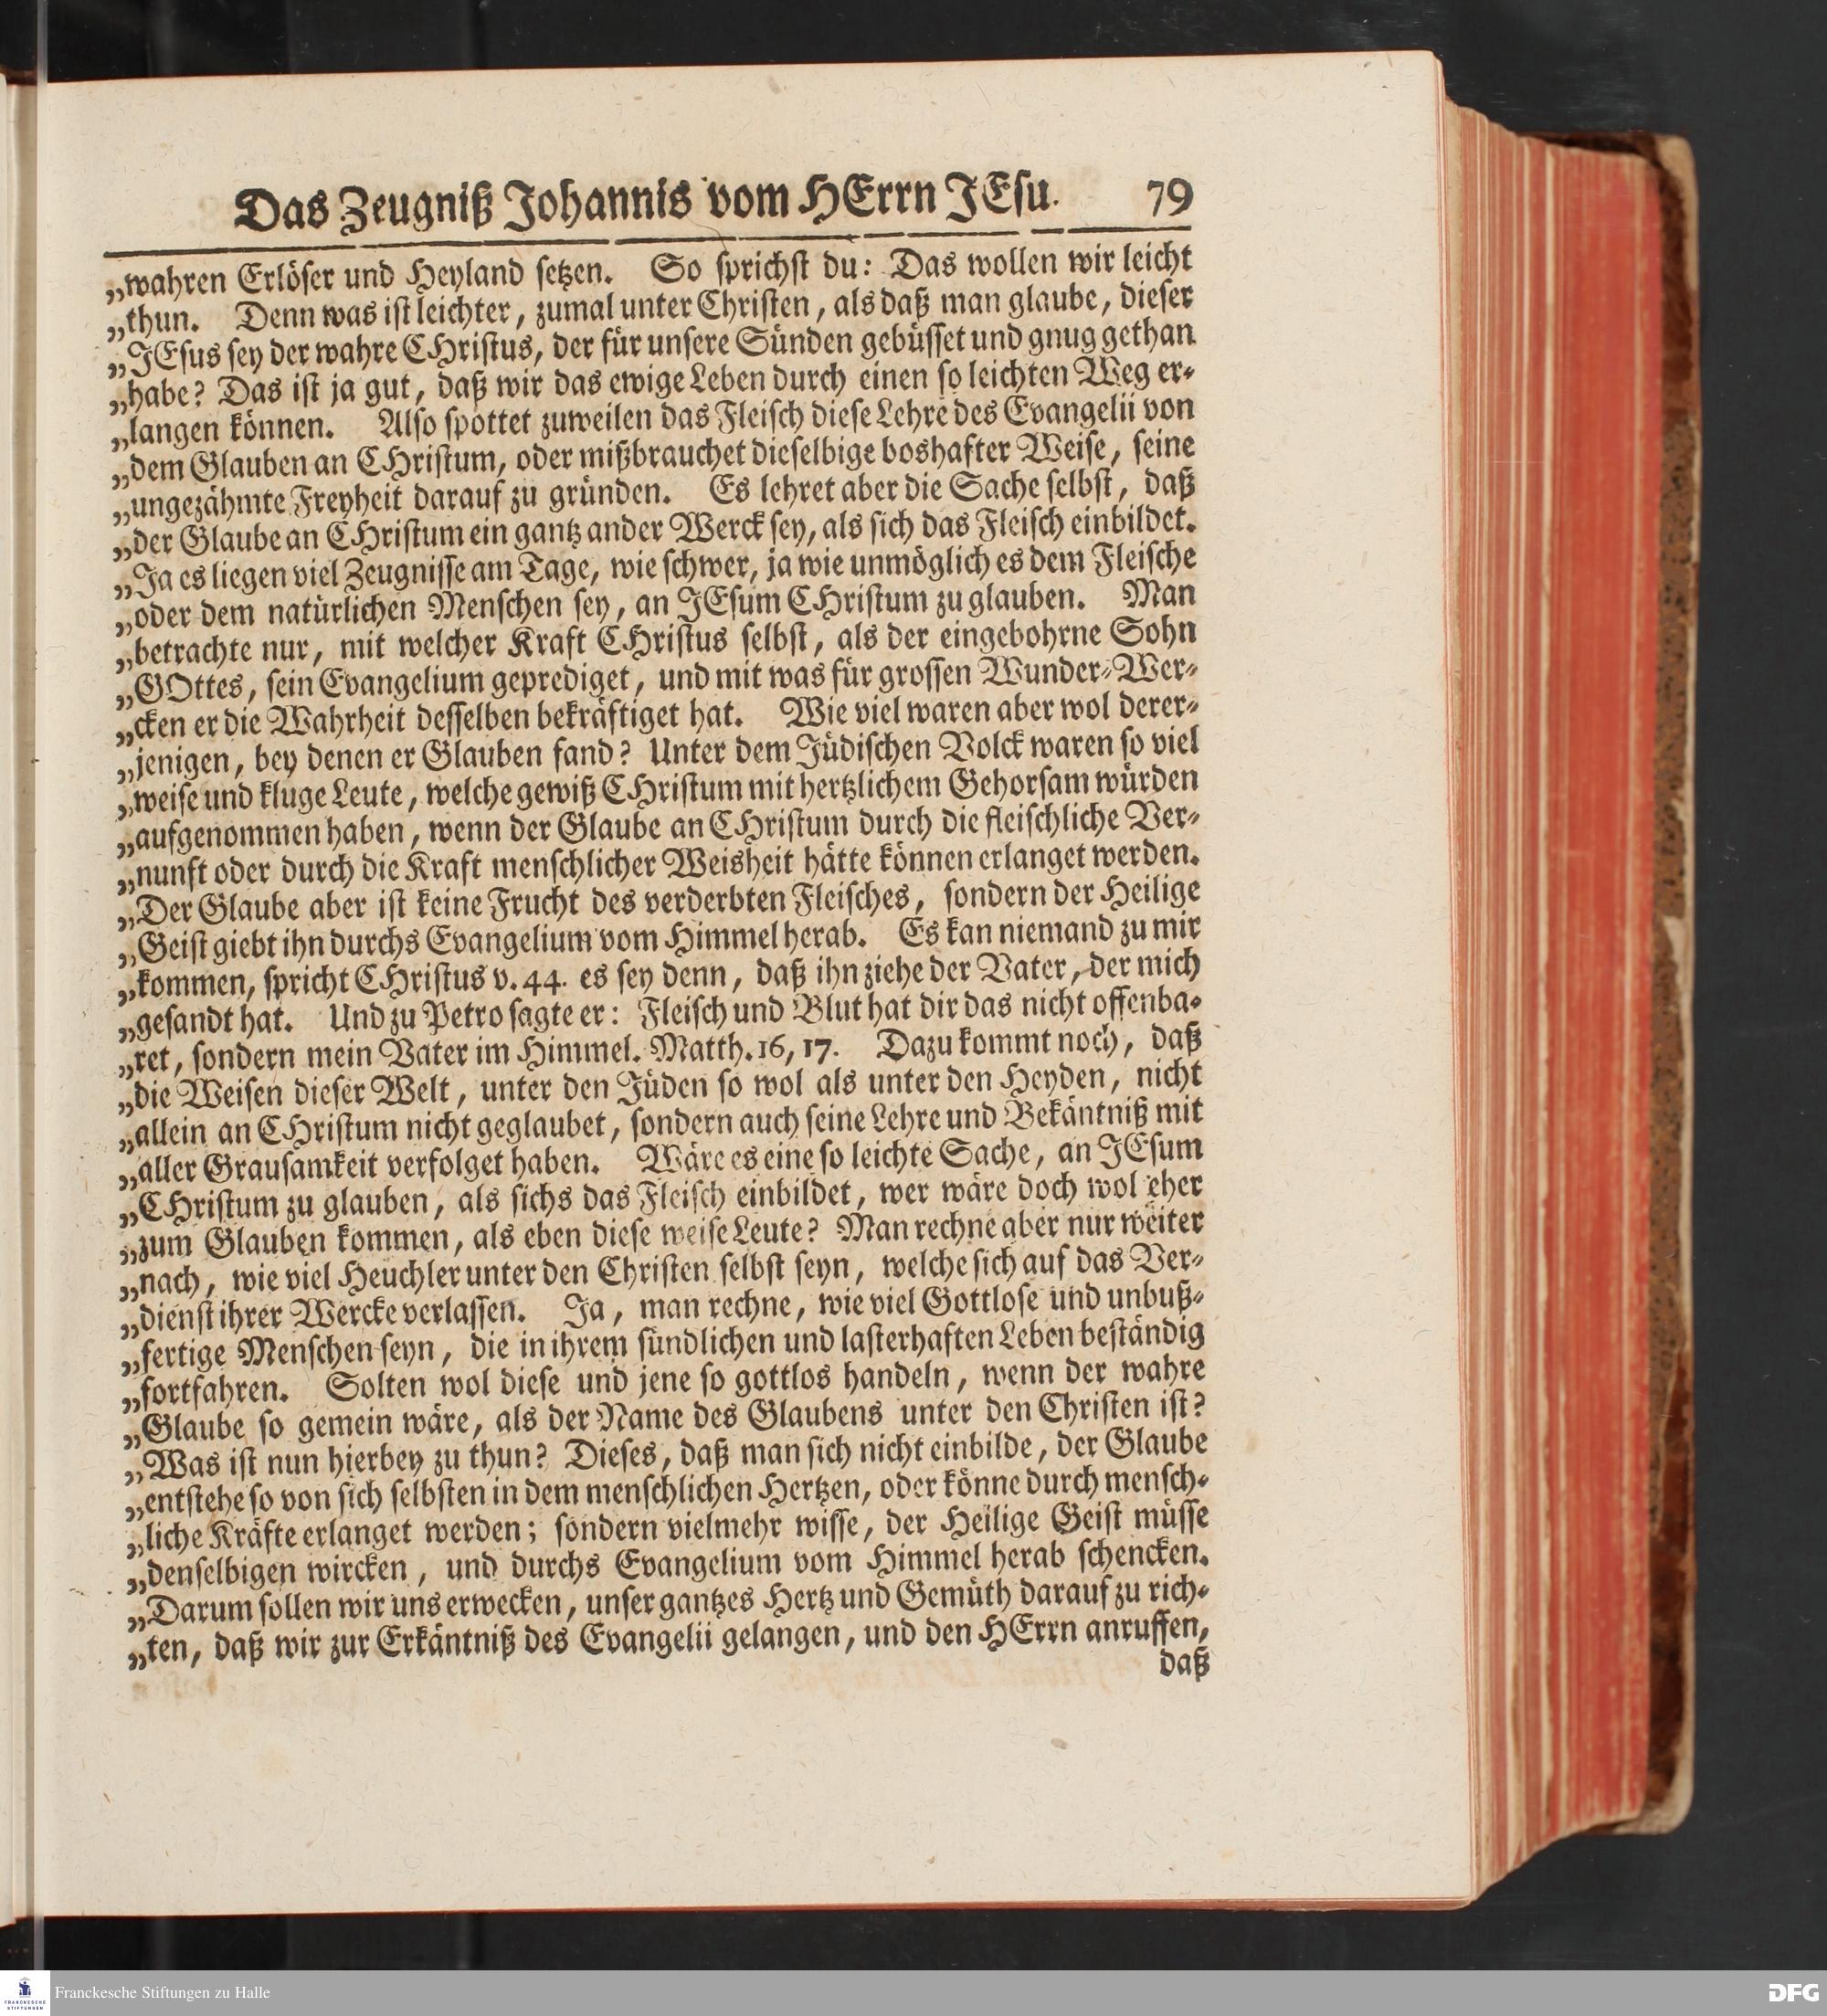 Das Zeugniß Johannis vom HErrn JEsu. 79
„wahren Erlöser und Heyland setzen. So sprichst du: Das wollen wir leicht
„thun. Denn was ist leichter, zumal unter Christen, als daß man glaube, dieser
„JEsus sey der wahre CHristus, der für unsere Sünden gebüsset und gnug gethan
„habe? Das ist ja gut, daß wir das ewige Leben durch einen so leichten Weg er-
„langen können. Also spottet zuweilen das Fleisch diese Lehre des Evangelii von
„dem Glauben an CHristum, oder mißbrauchet dieselbige boshafter Weise, seine
„ungezähmte Freyheit darauf zu gründen. Es lehret aber die Sache selbst, daß
„der Glaube an CHristum ein gantz ander Werck sey, als sich das Fleisch einbildet.
„Ja es liegen viel Zeugnisse am Tage, wie schwer, ja wie unmöglich es dem Fleische
„oder dem natürlichen Menschen sey, an JEsum CHristum zu glauben. Man
„betrachte nur, mit welcher Kraft CHristus selbst, als der eingebohrne Sohn
„GOttes, sein Evangelium geprediget, und mit was für grossen Wunder-Wer-
„cken er die Wahrheit desselben bekräftiget hat. Wie viel waren aber wol derer-
„jenigen, bey denen er Glauben fand? Unter dem Jüdischen Volck waren so viel
„weise und kluge Leute, welche gewiß CHristum mit hertzlichem Gehorsam würden
„aufgenommen haben, wenn der Glaube an CHristum durch die fleischliche Ver-
„nunft oder durch die Kraft menschlicher Weisheit hätte können erlanget werden.
„Der Glaube aber ist keine Frucht des verderbten Fleisches, sondern der Heilige
„Geist giebt ihn durchs Evangelium vom Himmel herab. Es kan niemand zu mir
„kommen, spricht CHristus v. 44. es sey denn, daß ihn ziehe der Vater, der mich
„gesandt hat. Und zu Petro sagte er: Fleisch und Blut hat dir das nicht offenba-
„ret, sondern mein Vater im Himmel. Matth. 16, 17. Dazu kommt noch, daß
„die Weisen dieser Welt, unter den Jüden so wol als unter den Heyden, nicht
„allein an CHristum nicht geglaubet, sondern auch seine Lehre und Bekäntniß mit
„aller Grausamkeit verfolget haben. Wäre es eine so leichte Sache, an JEsum
„CHristum zu glauben, als sichs das Fleisch einbildet, wer wäre doch wol eher
„zum Glauben kommen, als eben diese weise Leute? Man rechne aber nur weiter
„nach, wie viel Heuchler unter den Christen selbst seyn, welche sich auf das Ver-
„dienst ihrer Wercke verlassen. Ja, man rechne, wie viel Gottlose und unbuß-
„fertige Menschen seyn, die in ihrem sündlichen und lasterhaften Leben beständig
„fortfahren. Solten wol diese und jene so gottlos handeln, wenn der wahre
„Glaube so gemein wäre, als der Name des Glaubens unter den Christen ist?
„Was ist nun hierbey zu thun? Dieses, daß man sich nicht einbilde, der Glaube
„entstehe so von sich selbsten in dem menschlichen Hertzen, oder könne durch mensch-
„liche Kräfte erlanget werden; sondern vielmehr wisse, der Heilige Geist müsse
„denselbigen wircken, und durchs Evangelium vom Himmel herab schencken.
„Darum sollen wir uns erwecken, unser gantzes Hertz und Gemüth darauf zu rich-
„ten, daß wir zur Erkäntniß des Evangelii gelangen, und den HErrn anruffen,
daß
FRANCKESCHE STIFTUNGEN
Franckesche Stiftungen zu Halle
DFG